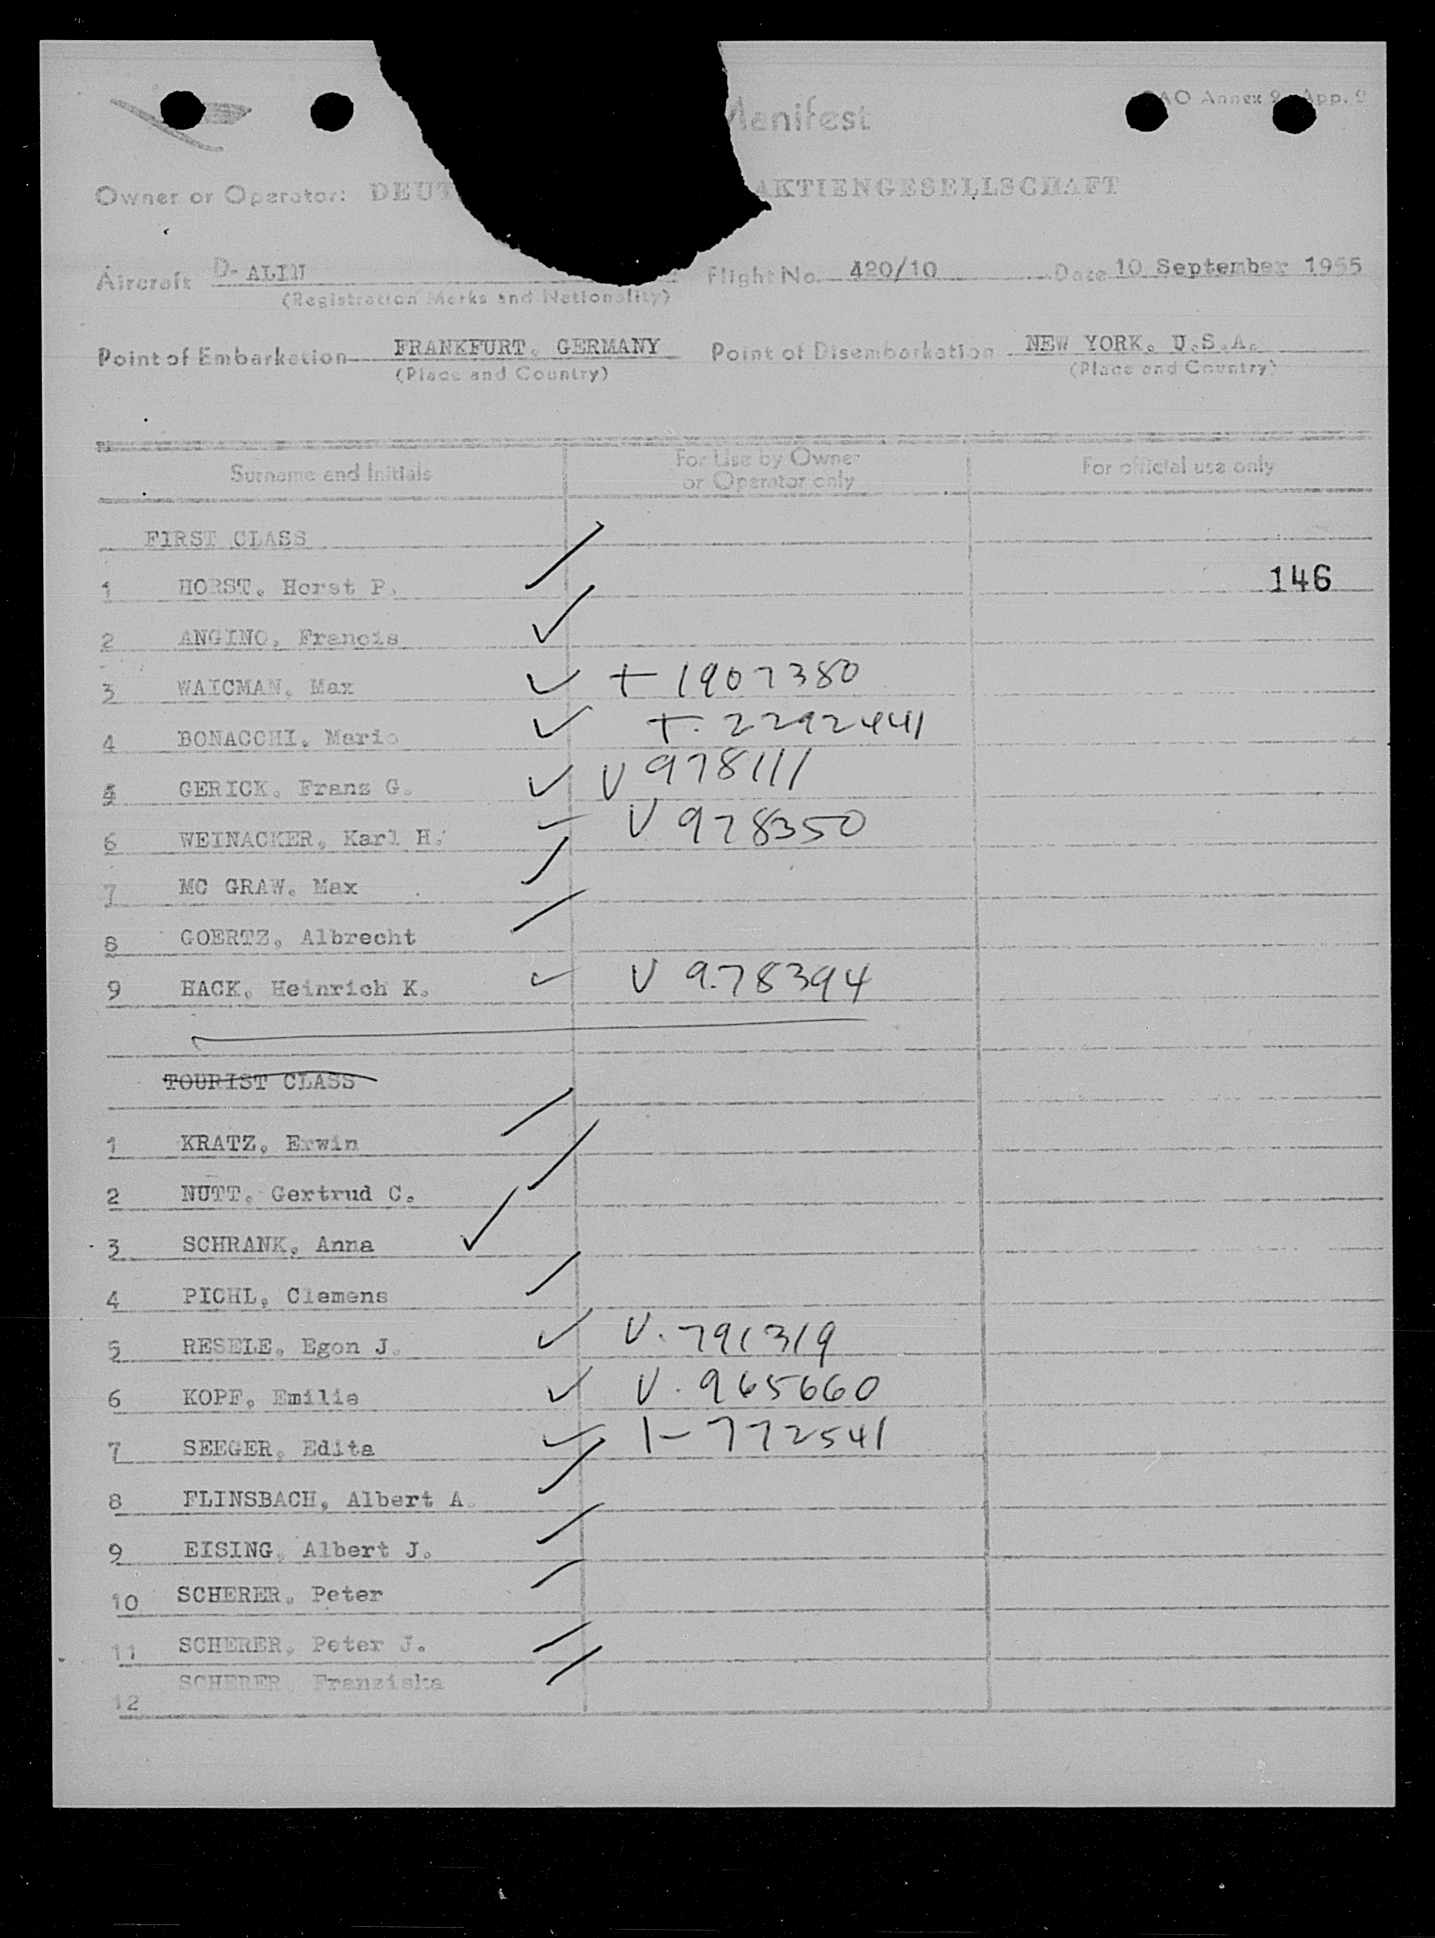 Manifest
ICAO Annex 9, App. 9
Owner or Operator: DEUT AKTIENGESELLSCHAFT
Aircraft D-ALIN Flight No. 420/10 Date 10 September 1955
(Registration Marks and Nationality)
Point of Embarkation FRANKFURT, GERMANY Point of Disembarkation NEW YORK, U.S.A.
(Place and Country) (Place and Country)
Surname and Initials For Use by Owner or Operator only For official use only
FIRST CLASS
1 HORST, Horst P. 146
2 ANGINO, Francis
3 WAICMAN, Max + 1907380
4 BONACCHI, Mario +. 2292441
5 GERICK, Franz G. V 978111
6 WEINACKER, Karl H. V 978350
7 MC GRAW, Max
8 GOERTZ, Albrecht
9 HACK, Heinrich K. V 978394
TOURIST CLASS
1 KRATZ, Erwin
2 NUTT, Gertrud C.
3 SCHRANK, Anna
4 PICHL, Clemens
5 RESELE, Egon J. V. 791319
6 KOPF, Emilie V. 965660
7 SEEGER, Edita 1-772541
8 FLINSBACH, Albert A.
9 EISING, Albert J.
10 SCHERER, Peter
11 SCHERER, Peter J.
12 SCHERER Franziska